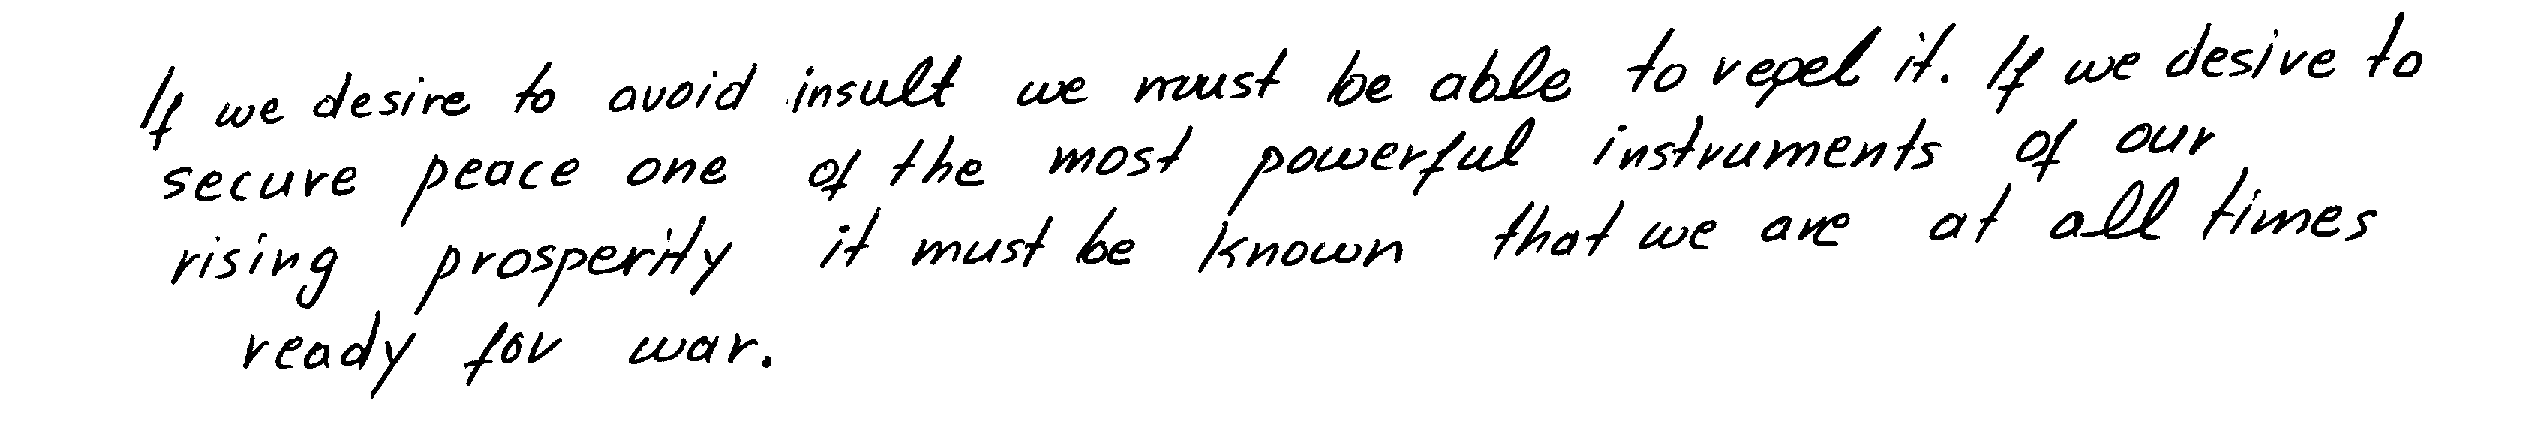 If we desire to avoid insult we must be able to repel it. If we desire to
secure peace one of the most powerful instruments of our
rising prosperity it must be known that we are at all times
ready for war.